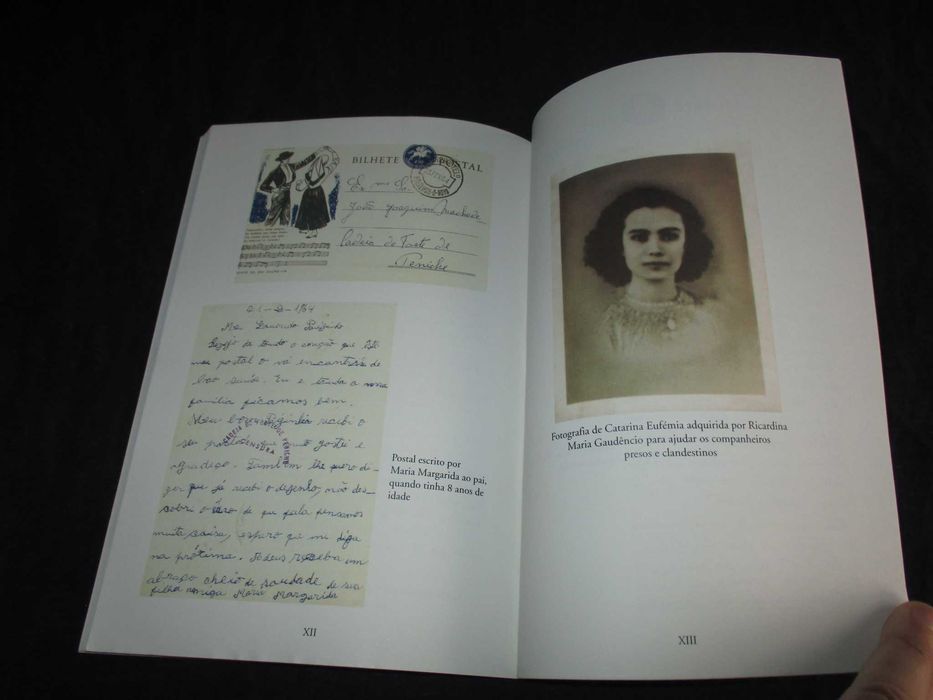 BILHETE POSTAL
Ex mo Sr.
João Joaquim Machado
Cadeia do Forte de
Peniche
Meu
Desejo de todo o coração que este
meu postal o vá encontrar de
boa saúde. Eu e toda a nossa
família ficamos bem.
Meu bom Paizinho recebi o
seu que muito gostei e
agradeço. Também lhe quero di-
zer que já recebi o dezenho, não des-
sobri o de que fala pensamos
muita coisa, espero que mi diga
na prótima. Adeus receba um
abraço cheio de saudade de sua
filha amiga Maria Margarida
CENSURA
Postal escrito por
Maria Margarida ao pai,
quando tinha 8 anos de
idade
XII
Fotografia de Catarina Eufémia adquirida por Ricardina
Maria Gaudêncio para ajudar os companheiros
presos e clandestinos
XIII